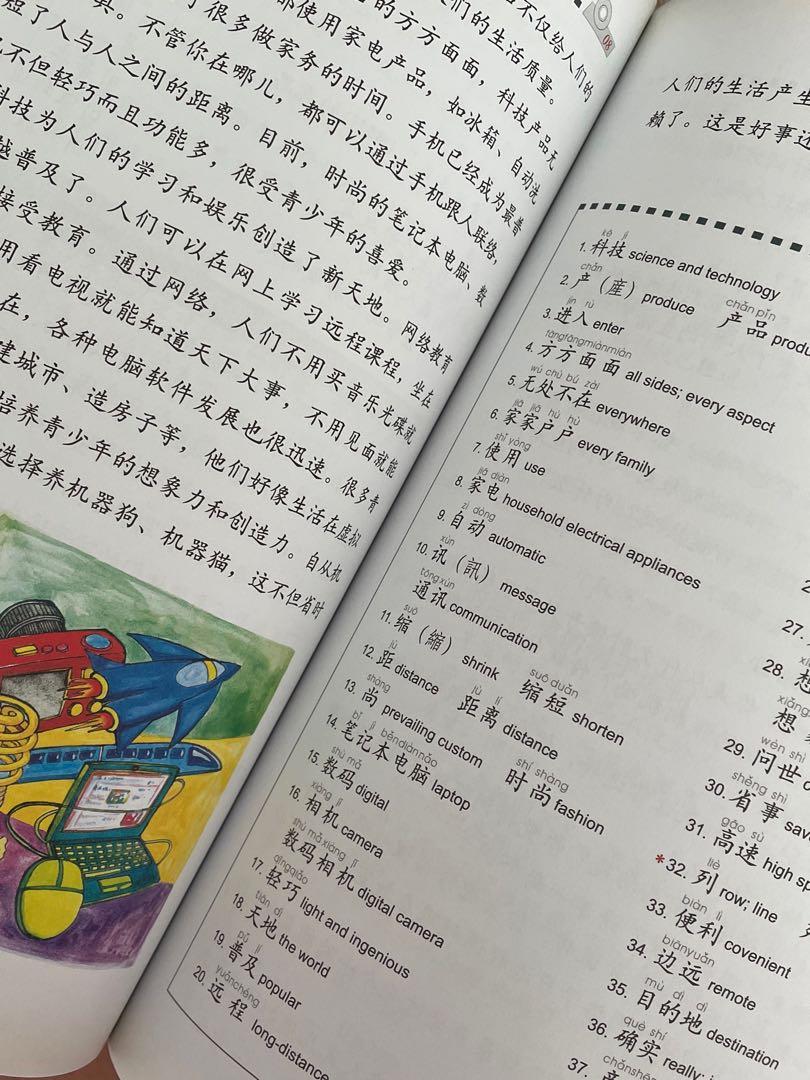 口不仅给人们的
们的生活质量。
的方方面面，科技产品无
部使用家电产品，如冰箱、自动洗
了很多做家务的时间。手机已经成为最普
具。不管你在哪儿，都可以通过手机跟人联络，
短了人与人之间的距离。目前，时尚的笔记本电脑、数
不但轻巧而且功能多，很受青少年的喜爱。
科技为人们的学习和娱乐创造了新天地。网络教育
越普及了。人们可以在网上学习远程课程，坐在
接受教育。通过网络，人们不用买音乐光碟就
用看电视就能知道天下大事，不用见面就能
在，各种电脑软件发展也很迅速。很多青
建城市、造房子等，他们好像生活在虚拟
培养青少年的想象力和创造力。自从机
选择养机器狗、机器猫，这不但省时
08
人们的生活产生
赖了。这是好事还
kē jì
1. 科技 science and technology
chǎn chǎn pǐn
2. 产（産）produce 产品 produ
jìn rù
3. 进入 enter
fāngfāngmiànmiàn
4. 方方面面 all sides; every aspect
wú chù bú zài
5. 无处不在 everywhere
jiā jiā hù hù
6. 家家户户 every family
shǐ yòng
7. 使用 use
jiā diàn
8. 家电 household electrical appliances
zì dòng
9. 自动 automatic
xùn
10. 讯（訊）message
tōng xùn
通讯 communication
suō suō duǎn
11. 缩（縮）shrink 缩短 shorten
jù jù lí
12. 距 distance 距离 distance
shàng shí shàng
13. 尚 prevailing custom 时尚 fashion
bǐ jì běndiànnǎo
14. 笔记本电脑 laptop
shù mǎ
15. 数码 digital
xiàng jī
16. 相机 camera
shù mǎ xiàng jī
数码相机 digital camera
qīngqiǎo
17. 轻巧 light and ingenious
tiān dì
18. 天地 the world
pǔ jí
19. 普及 popular
yuǎnchéng
20. 远程 long-distance
27.
28. 想
xiǎng
想
wèn shì
29. 问世
shěng shì
30. 省事 save
gāo sù
31. 高速 high sp
liè
*32. 列 row; line
biàn lì
33. 便利 covenient
biānyuǎn
34. 边远 remote
mù dì dì
35. 目的地 destination
què shí
36. 确实 really;
37.